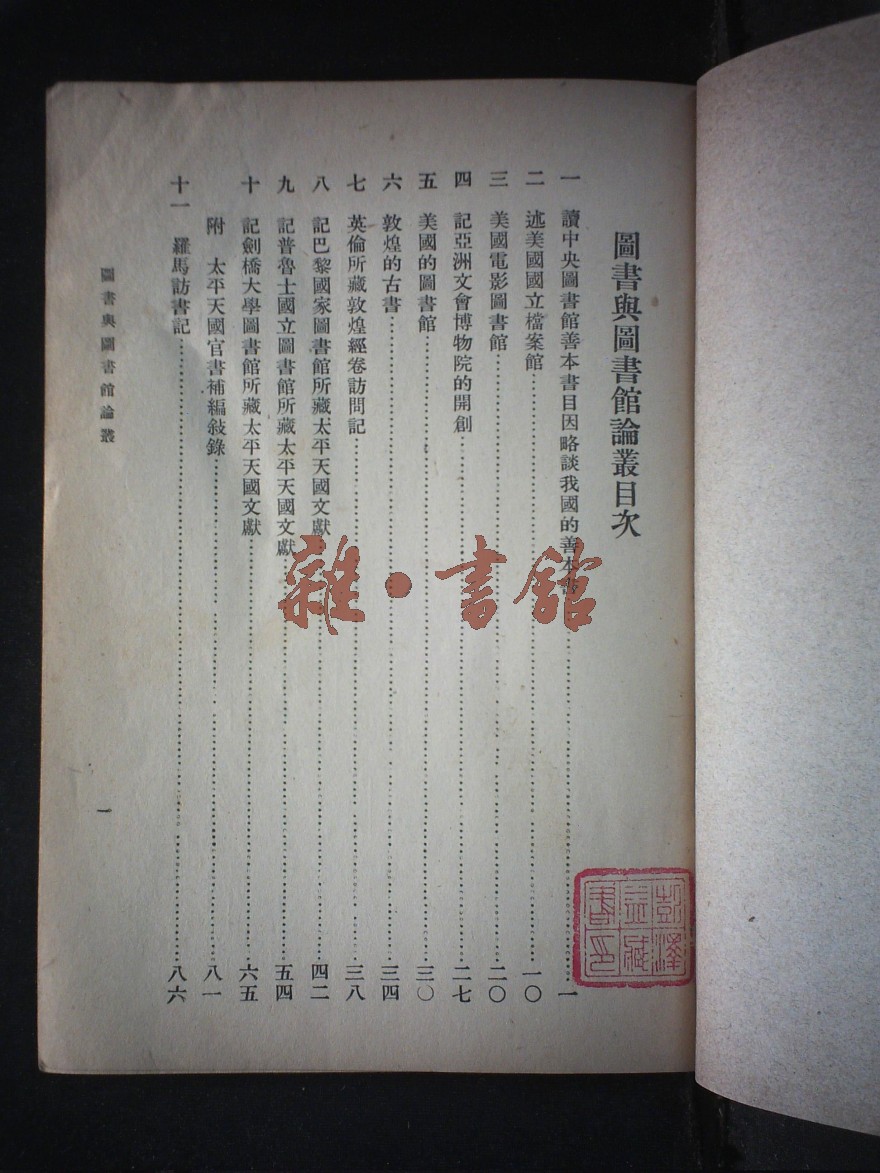 圖書與圖書館論叢目次
一 讀中央圖書館善本書目因略談我國的善本書……一
二 述美國國立檔案館……一〇
三 美國電影圖書館……二〇
四 記亞洲文會博物院的開創……二七
五 美國的圖書館……三〇
六 敦煌的古書……三四
七 英倫所藏敦煌經卷訪問記……三八
八 記巴黎國家圖書館所藏太平天國文獻……四二
九 記普魯士國立圖書館所藏太平天國文獻……五四
十 記劍橋大學圖書館所藏太平天國文獻……六五
附 太平天國官書補編敍錄……八一
十一 羅馬訪書記……八六
圖書與圖書館論叢
一
雜·書館
彭澤益藏書印